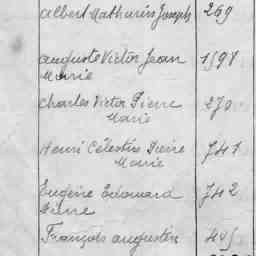 Albert Mathurin Joseph 269
Auguste Victor Jean 1598
Marie
Charles Victor Pierre 270
Marie
Henri Célestin Pierre 741
Marie
Eugène Edouard 742
Pierre
François Augustin